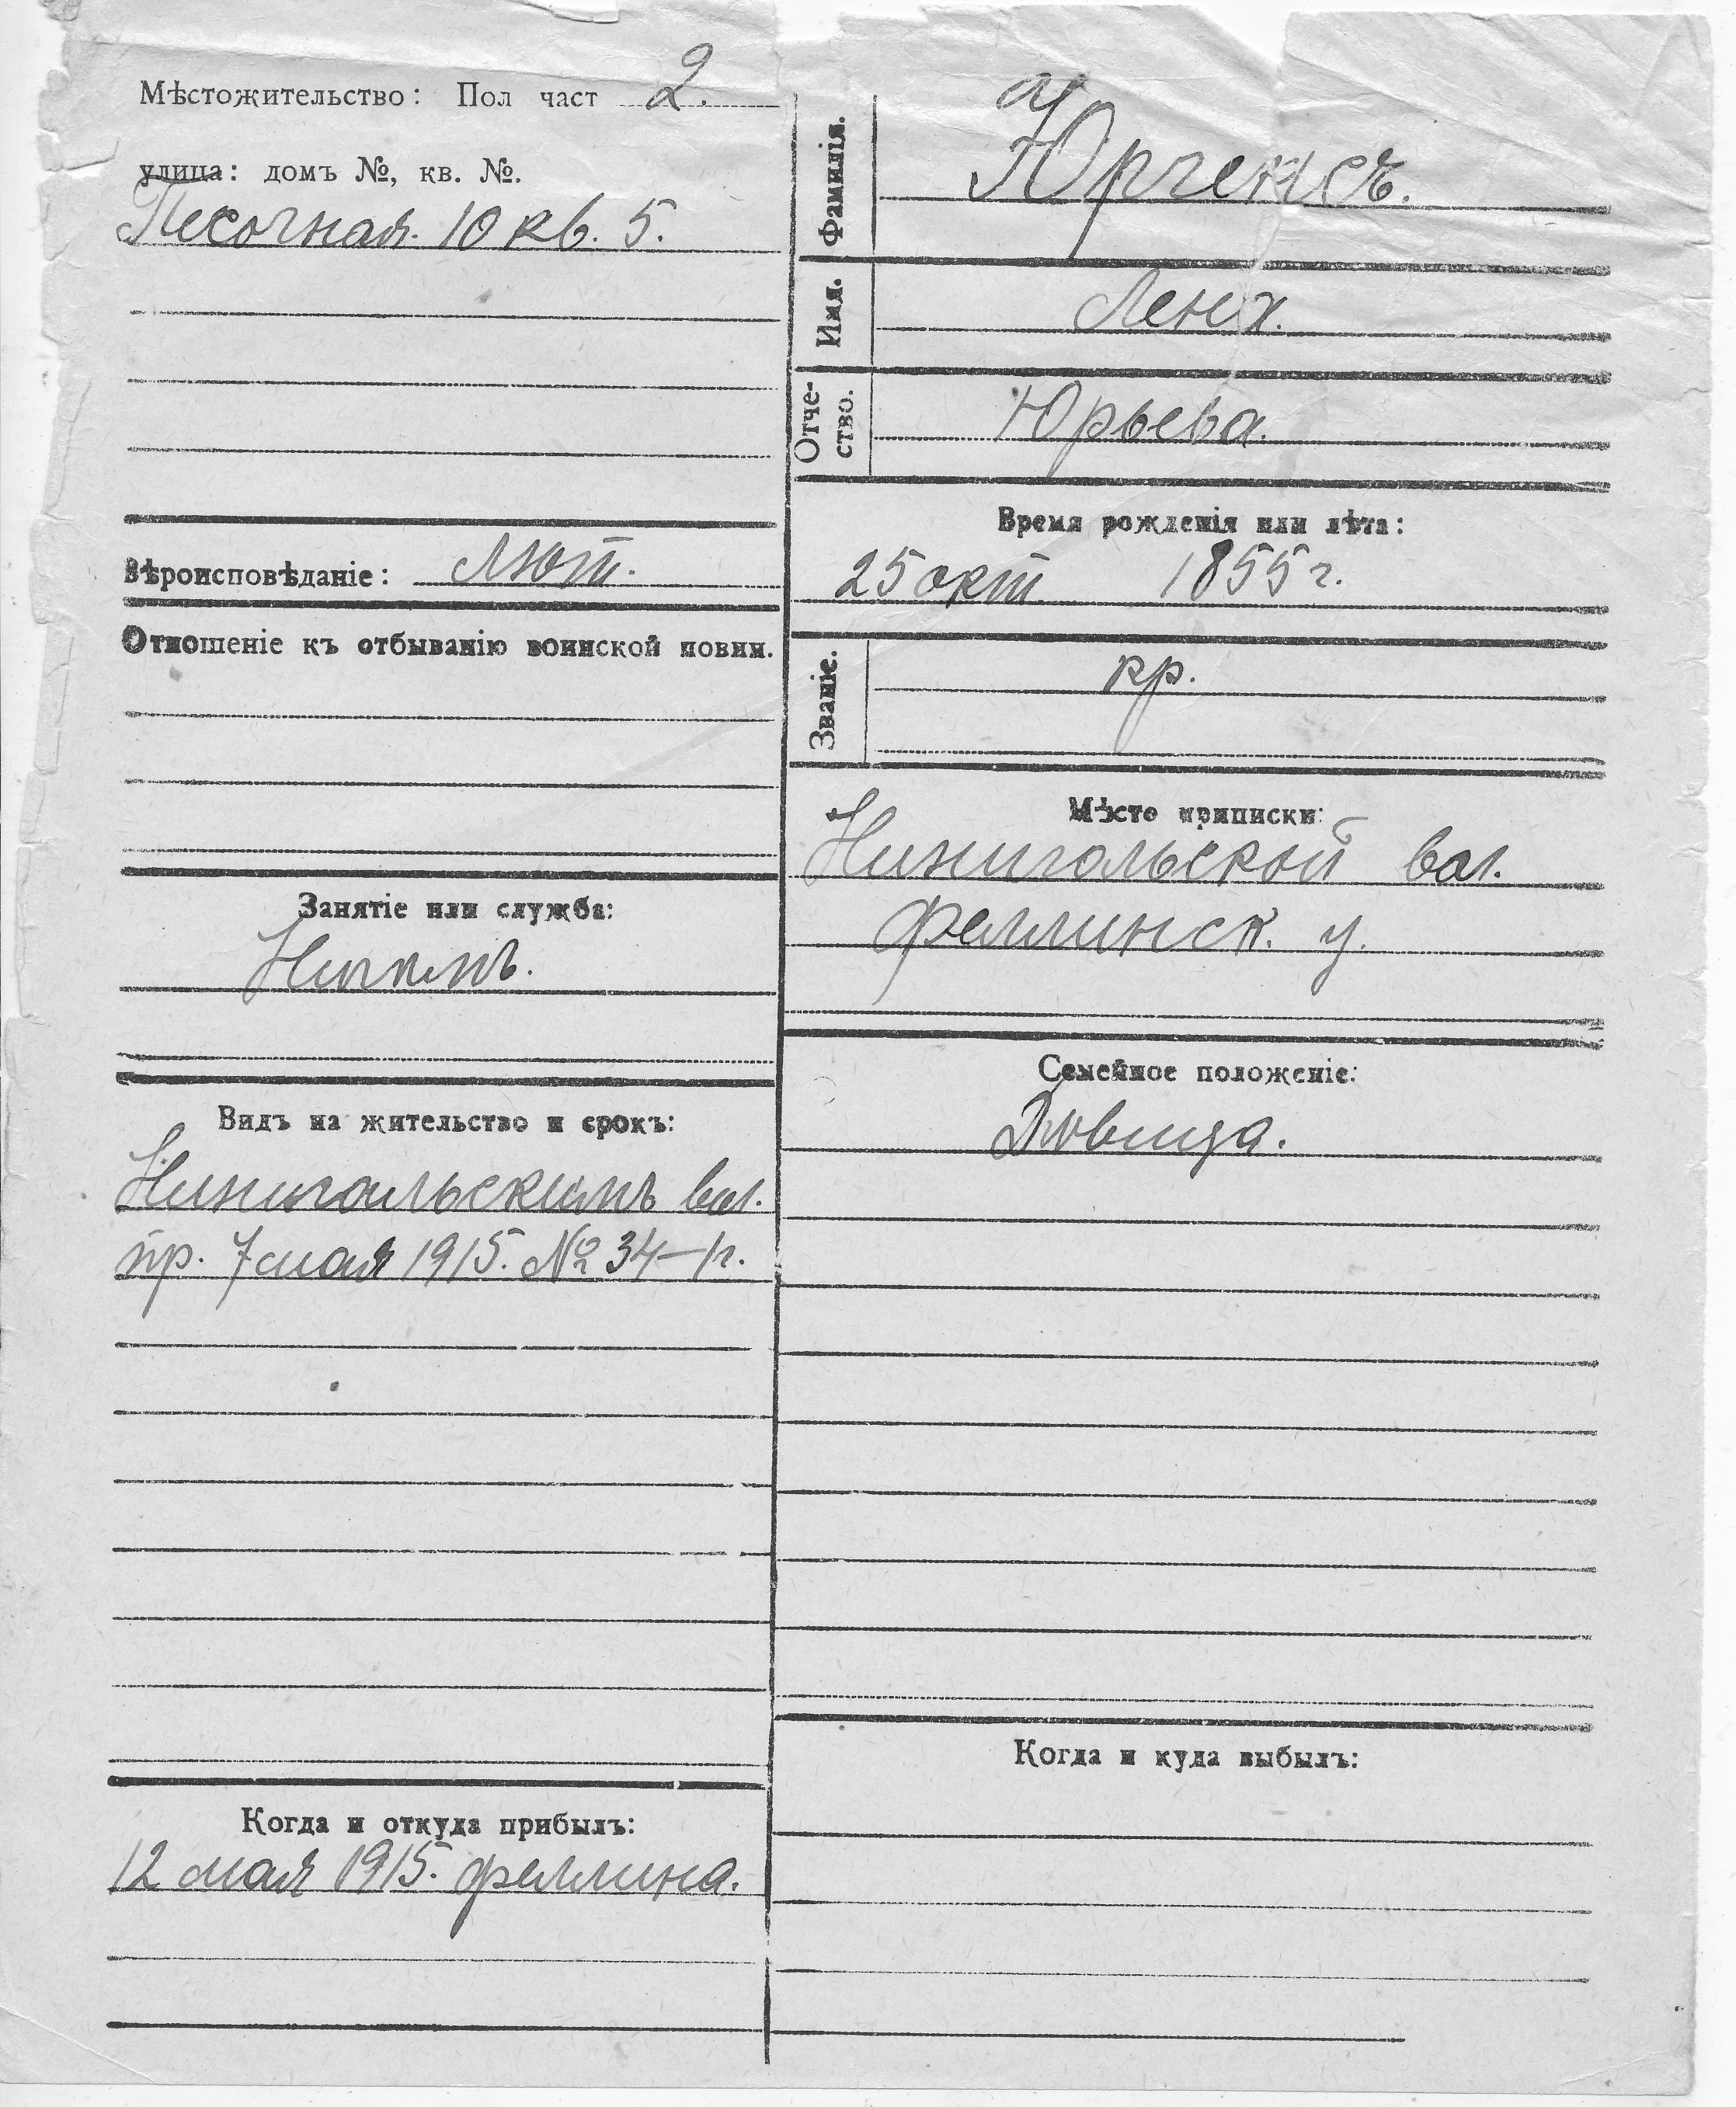 Мѣстожительство: Пол част 2.
улица: домъ №, кв. №.
Песочная. 10 кв. 5.
Вѣроисповѣданіе: Лют.
Отношеніе къ отбыванію воинской повин.
Занятіе или служба:
Видъ на жительство и срокъ:
Нинигальскимъ вол.
пр. 7 мая 1915. № 34
Когда и откуда прибылъ:
12 мая 1915. Феллина.
Фамилія. Юргенсъ.
Имя. Лена.
Отче-
ство. Юрьева.
Время рожденія или лѣта:
25 окт. 1855 г.
Званіе. кр.
Мѣсто приписки:
Нинигальской вол.
Феллинск. у.
Семейное положеніе:
Дѣвица.
Когда и куда выбылъ: